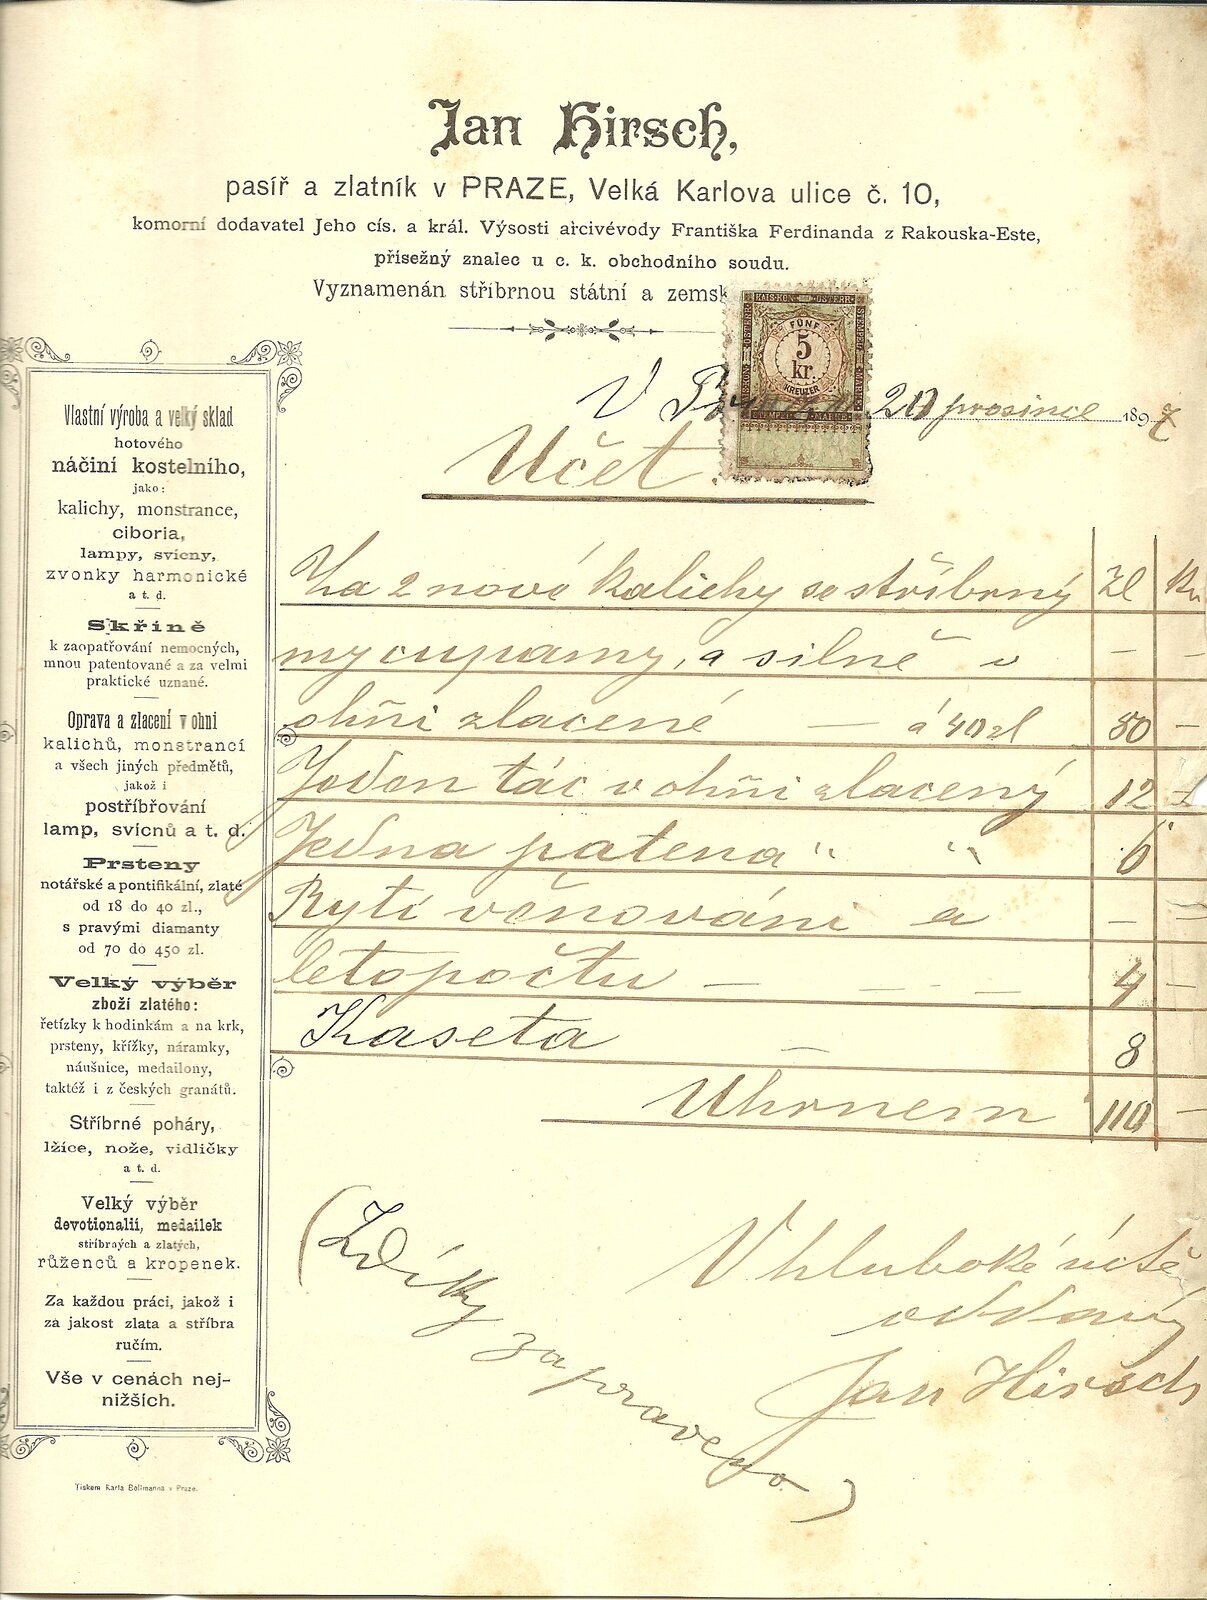 Jan Hirsch,
pasíř a zlatník v PRAZE, Velká Karlova ulice č. 10,
komorní dodavatel Jeho cís. a král. Výsosti arcivévody Františka Ferdinanda z Rakouska-Este,
přísežný znalec u c. k. obchodního soudu.
Vyznamenán stříbrnou státní a zemsk
KAIS·KÖN ÖSTERR·
STEMPEL MARKE
FÜNF
5
kr.
KREUZER
V 20 prosince 1897
Účet.
Vlastní výroba a velký sklad
hotového
náčiní kostelního,
jako:
kalichy, monstrance,
ciboria,
lampy, svícny,
zvonky harmonické
a t. d.
Skříně
k zaopatřování nemocných,
mnou patentované a za velmi
praktické uznané.
Oprava a zlacení v ohni
kalichů, monstrancí
a všech jiných předmětů,
jakož i
postříbřování
lamp, svícnů a t. d.
Prsteny
notářské a pontifikální, zlaté
od 18 do 40 zl.,
s pravými diamanty
od 70 do 450 zl.
Velký výběr
zboží zlatého:
řetízky k hodinkám a na krk,
prsteny, křížky, náramky,
náušnice, medailony,
taktéž i z českých granátů.
Stříbrné poháry,
lžíce, nože, vidličky
a t. d.
Velký výběr
devotionalií, medailek
stříbrných a zlatých,
růženců a kropenek.
Za každou práci, jakož i
za jakost zlata a stříbra
ručím.
Vše v cenách nej-
nižších.
Tiskem Karla Bellmanna v Praze.
Za 2 nové kalichy se stříbrný Zl Kr
my cupamy, a silně v — —
ohňi zlacené — á 40 zl 80 —
Jeden tác v ohňi zlacený 12 —
Jedna patena " " 6
Rytí věnováni a — —
letopočtu — — — — 4 —
Kaseta — 8
Uhrnem 110 —
V hluboké úctě
oddaný
Jan Hirsch
(Zdíky
zapraveno)